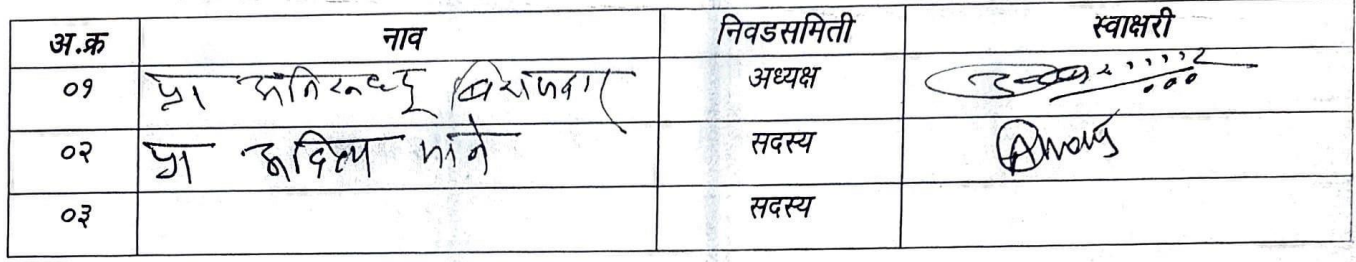 अ.क्र नाव निवडसमिती स्वाक्षरी
०१ प्रा अनिरुध्द बिराजदार अध्यक्ष
०२ प्रा आदित्य माने सदस्य
०३ सदस्य